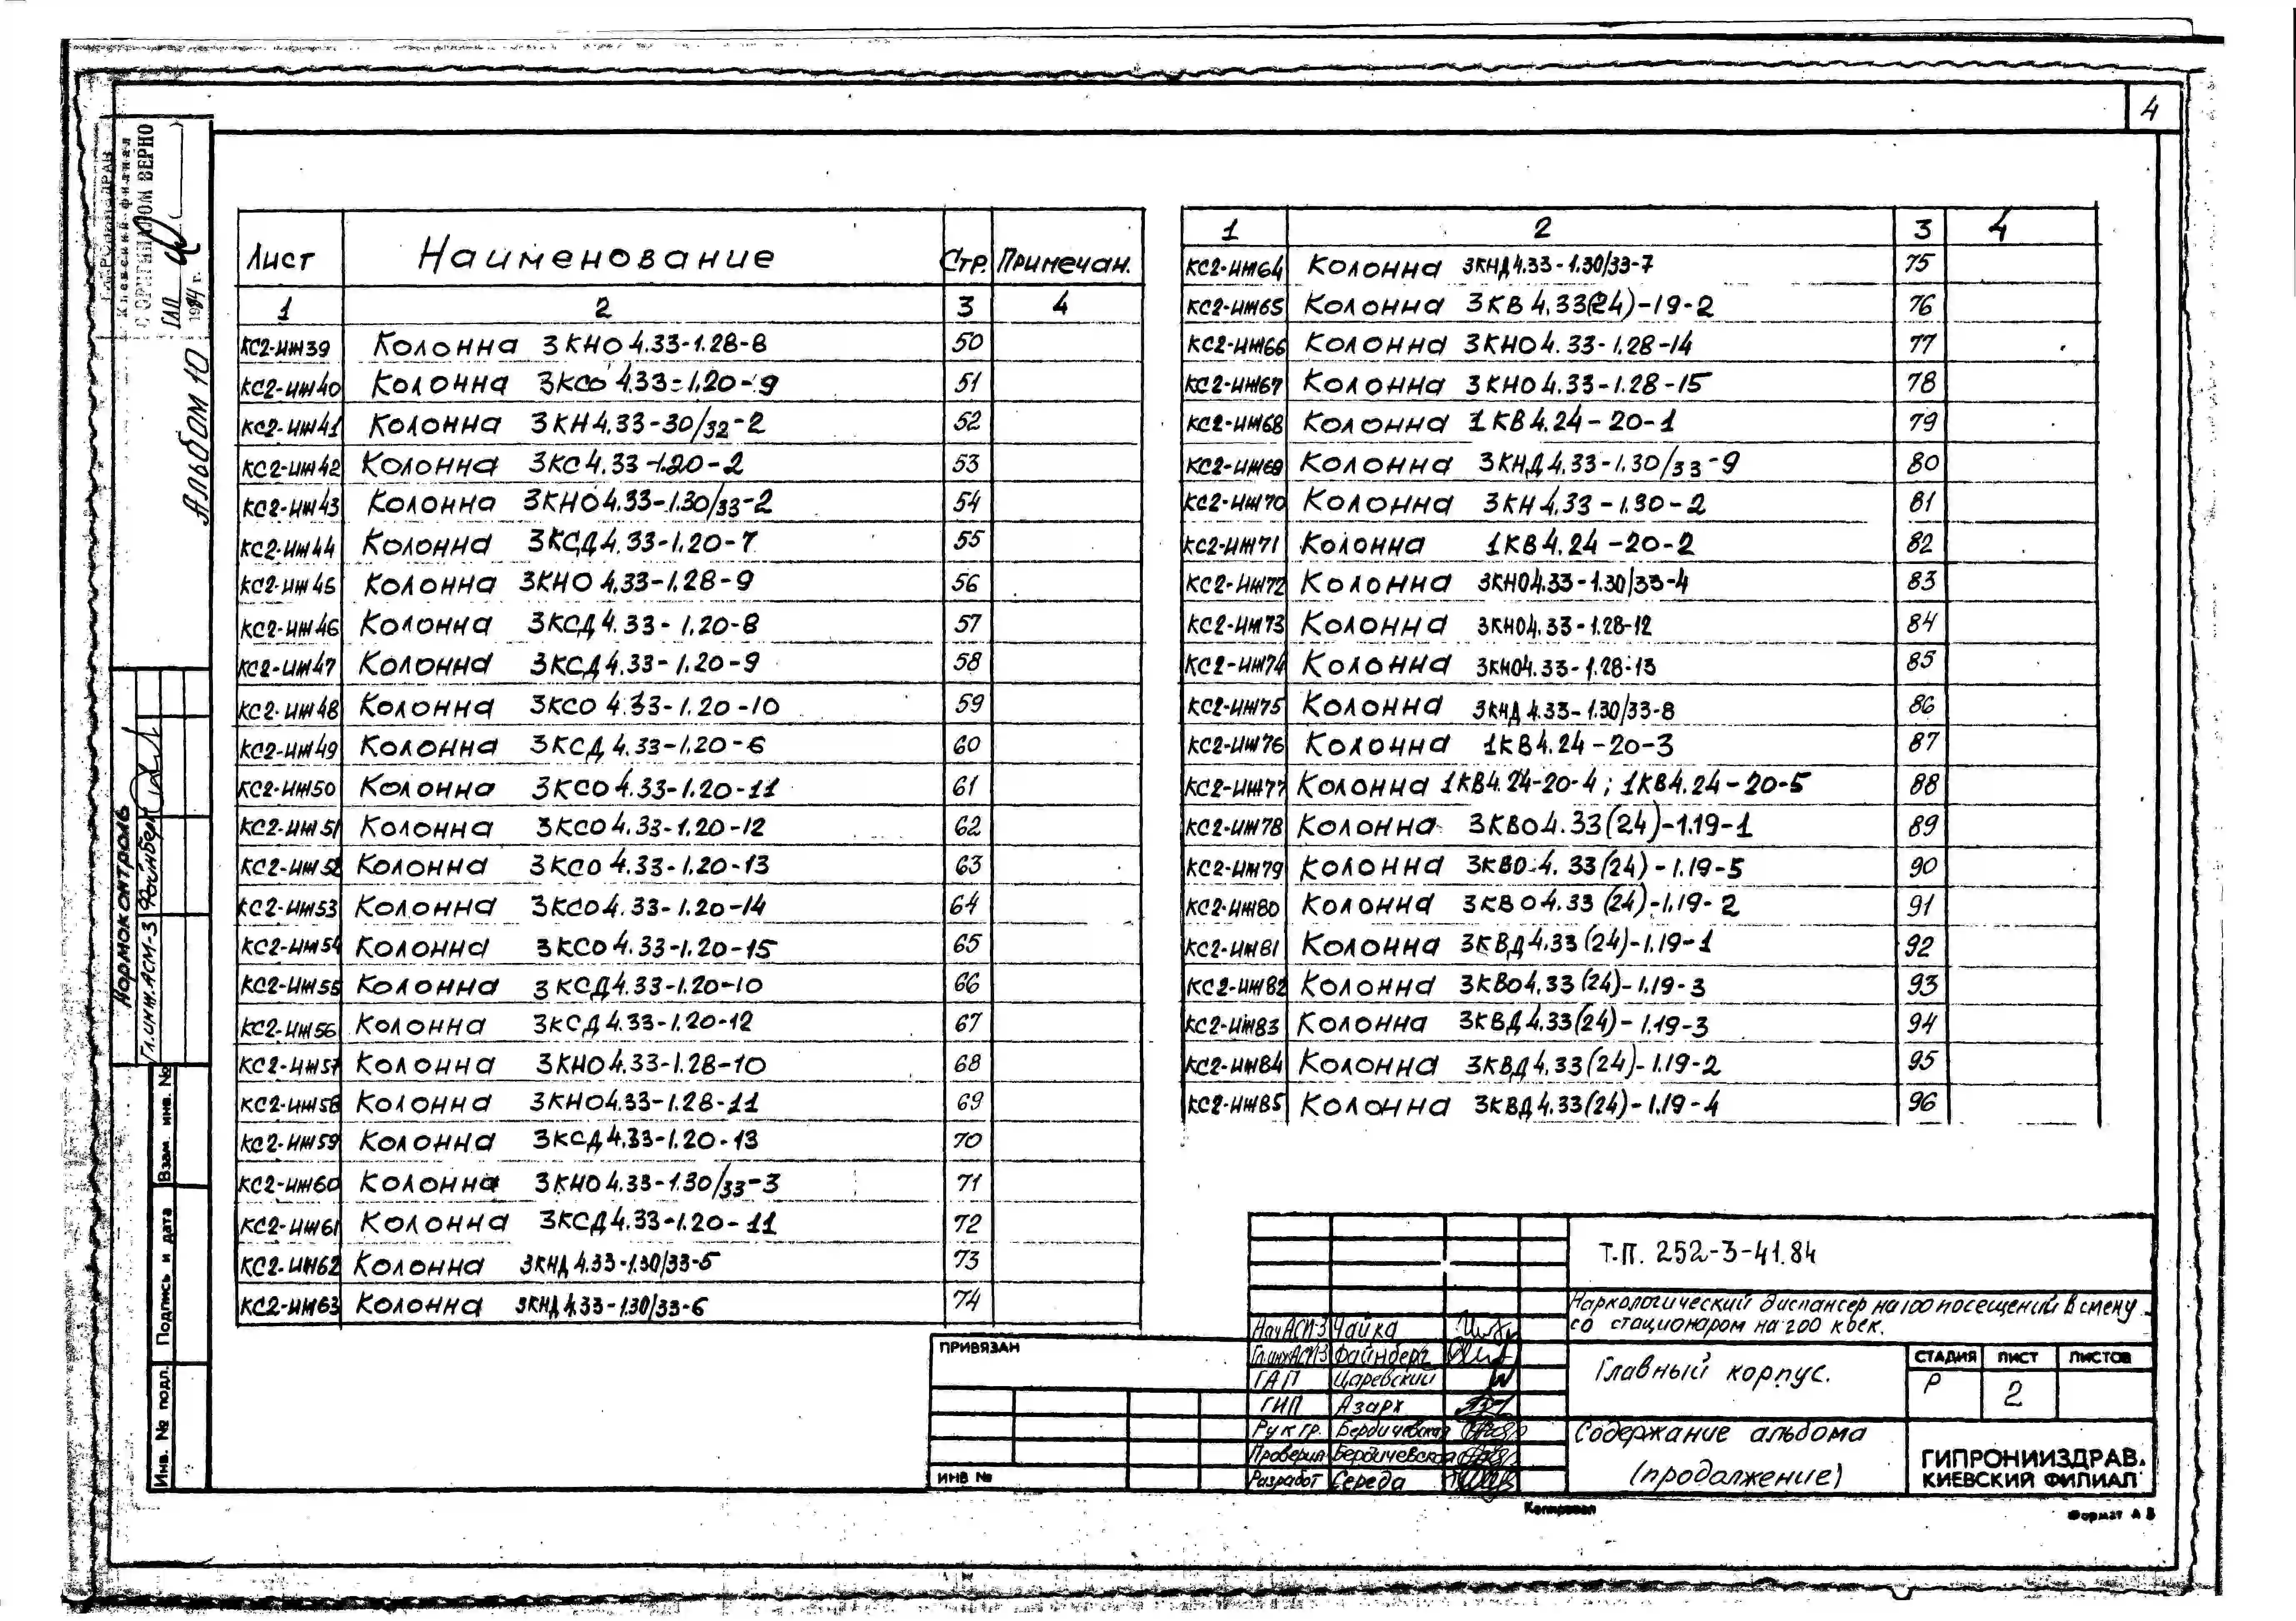 4
Киевский филиал
С ОРИГИНАЛОМ ВЕРНО
ГАП
1984 г.
Альбом 10
Нормоконтроль
Гл.инж.АСМ-3 Файнберг
Взам. инв. №
Подпись и дата
Инв. № подл.
Лист Наименование Стр. Примечан.
1 2 3 4
КС2-ИЖ39 Колонна 3КНО4.33-1.28-8 50
КС2-ИЖ40 Колонна 3КСО4.33-1.20-9 51
КС2-ИЖ41 Колонна 3КН4.33-30/32-2 52
КС2-ИЖ42 Колонна 3КС4.33-1.20-2 53
КС2-ИЖ43 Колонна 3КНО4.33-1.30/33-2 54
КС2-ИЖ44 Колонна 3КСД4.33-1.20-7 55
КС2-ИЖ45 Колонна 3КНО4.33-1.28-9 56
КС2-ИЖ46 Колонна 3КСД4.33-1.20-8 57
КС2-ИЖ47 Колонна 3КСД4.33-1.20-9 58
КС2-ИЖ48 Колонна 3КСО4.33-1.20-10 59
КС2-ИЖ49 Колонна 3КСД4.33-1.20-6 60
КС2-ИЖ50 Колонна 3КСО4.33-1.20-11 61
КС2-ИЖ51 Колонна 3КСО4.33-1.20-12 62
КС2-ИЖ52 Колонна 3КСО4.33-1.20-13 63
КС2-ИЖ53 Колонна 3КСО4.33-1.20-14 64
КС2-ИЖ54 Колонна 3КСО4.33-1.20-15 65
КС2-ИЖ55 Колонна 3КСД4.33-1.20-10 66
КС2-ИЖ56 Колонна 3КСД4.33-1.20-12 67
КС2-ИЖ57 Колонна 3КНО4.33-1.28-10 68
КС2-ИЖ58 Колонна 3КНО4.33-1.28-11 69
КС2-ИЖ59 Колонна 3КСД4.33-1.20-13 70
КС2-ИЖ60 Колонна 3КНО4.33-1.30/33-3 71
КС2-ИЖ61 Колонна 3КСД4.33-1.20-11 72
КС2-ИЖ62 Колонна 3КНД4.33-1.30/33-5 73
КС2-ИЖ63 Колонна 3КНД4.33-1.30/33-6 74
1 2 3 4
КС2-ИЖ64 Колонна 3КНД4.33-1.30/33-7 75
КС2-ИЖ65 Колонна 3КВ4.33(24)-19-2 76
КС2-ИЖ66 Колонна 3КНО4.33-1.28-14 77
КС2-ИЖ67 Колонна 3КНО4.33-1.28-15 78
КС2-ИЖ68 Колонна 1КВ4.24-20-1 79
КС2-ИЖ69 Колонна 3КНД4.33-1.30/33-9 80
КС2-ИЖ70 Колонна 3КН4.33-1.30-2 81
КС2-ИЖ71 Колонна 1КВ4.24-20-2 82
КС2-ИЖ72 Колонна 3КНО4.33-1.30/33-4 83
КС2-ИЖ73 Колонна 3КНО4.33-1.28-12 84
КС2-ИЖ74 Колонна 3КНО4.33-1.28-13 85
КС2-ИЖ75 Колонна 3КНД4.33-1.30/33-8 86
КС2-ИЖ76 Колонна 1КВ4.24-20-3 87
КС2-ИЖ77 Колонна 1КВ4.24-20-4; 1КВ4.24-20-5 88
КС2-ИЖ78 Колонна 3КВО4.33(24)-1.19-1 89
КС2-ИЖ79 Колонна 3КВО4.33(24)-1.19-5 90
КС2-ИЖ80 Колонна 3КВО4.33(24)-1.19-2 91
КС2-ИЖ81 Колонна 3КВД4.33(24)-1.19-1 92
КС2-ИЖ82 Колонна 3КВО4.33(24)-1.19-3 93
КС2-ИЖ83 Колонна 3КВД4.33(24)-1.19-3 94
КС2-ИЖ84 Колонна 3КВД4.33(24)-1.19-2 95
КС2-ИЖ85 Колонна 3КВД4.33(24)-1.19-4 96
ПРИВЯЗАН
ИНВ №
Т.П. 252-3-41.84
Наркологический диспансер на 100 посещений в смену
со стационаром на 200 коек.
Нач АСМ-3 Чайка
Гл.инж АСМ-3 Файнберг
ГАП Царевский
ГИП Азарх
Рук гр. Бердичевская
Проверил Бердичевская
Разработ Середа
Главный корпус.
СТАДИЯ ЛИСТ ЛИСТОВ
Р 2
Содержание альбома
(продолжение)
ГИПРОНИИЗДРАВ.
КИЕВСКИЙ ФИЛИАЛ
Копировал
Формат А3